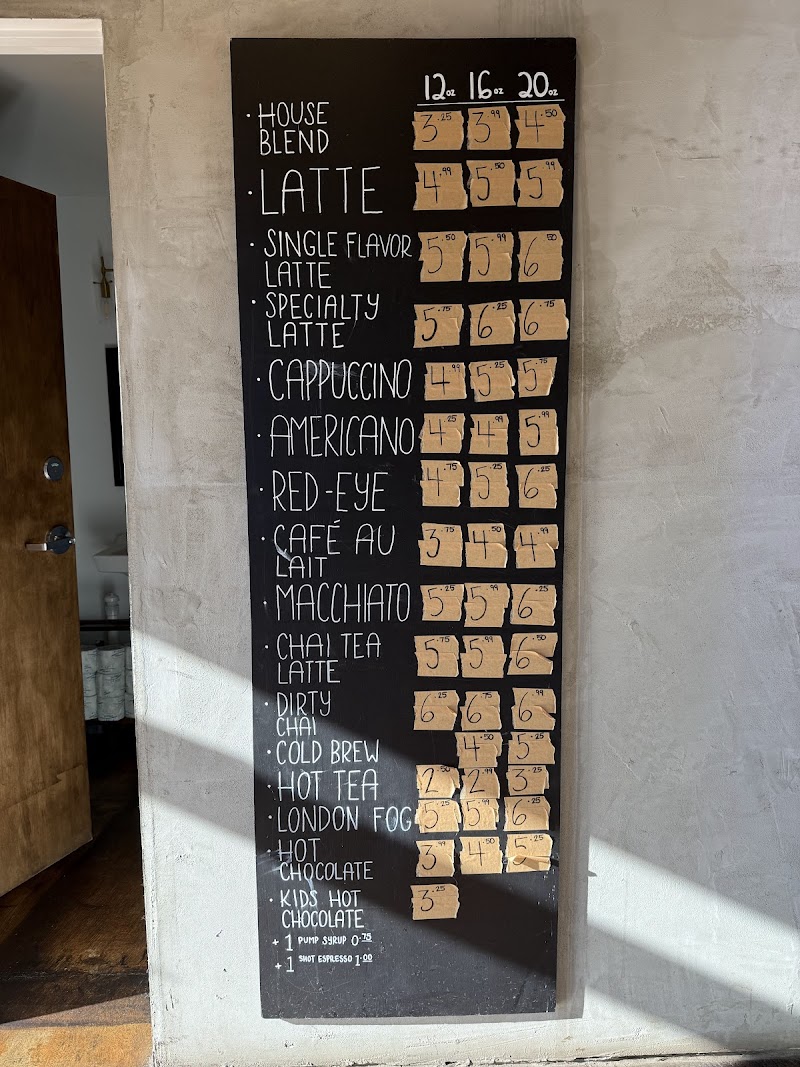 12oz 16oz 20oz
· HOUSE BLEND 3.25 3.99 4.50
· LATTE 4.99 5.50 5.99
· SINGLE FLAVOR LATTE 5.50 5.99 6.50
· SPECIALTY LATTE 5.75 6.25 6.75
· CAPPUCCINO 4.99 5.25 5.75
· AMERICANO 4.25 4.99 5.99
· RED-EYE 4.75 5.25 6.25
· CAFÉ AU LAIT 3.75 4.50 4.99
· MACCHIATO 5.25 5.99 6.25
· CHAI TEA LATTE 5.75 5.99 6.50
· DIRTY CHAI 6.25 6.75 6.99
· COLD BREW 4.50 5.25
· HOT TEA 2.50 2.99 3.25
· LONDON FOG 5.25 5.99 6.25
· HOT CHOCOLATE 3.99 4.50 5.25
· KIDS HOT CHOCOLATE 3.25
+1 PUMP SYRUP 0.75
+1 SHOT ESPRESSO 1.00